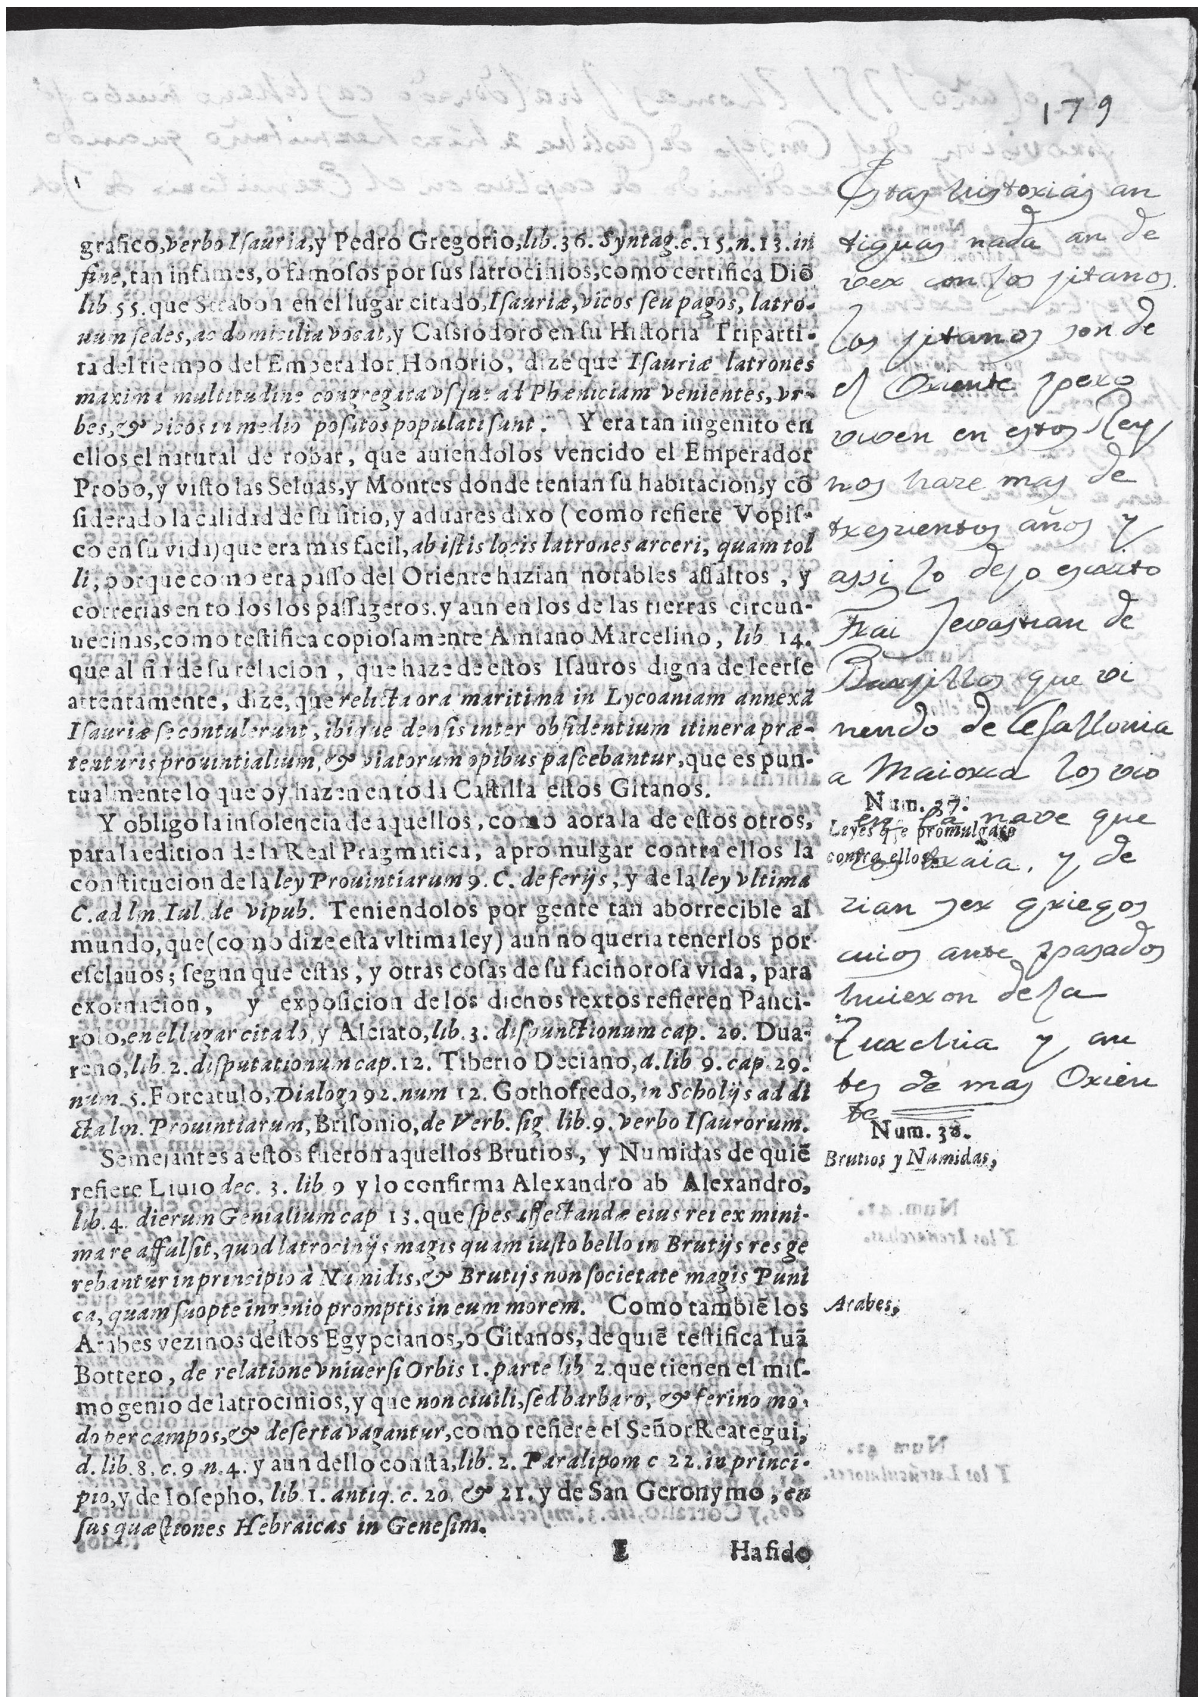 179
grafico, verbo Isauria, y Pedro Gregorio, lib. 36. Syntag. c. 15. n. 13. in
fine, tan infames, o famosos por sus latrocinios, como certifica Diõ
lib. 55. que Strabon en el lugar citado, Isauriæ, vicos seu pagos, latro-
num sedes, ac domicilia vocat, y Cassiodoro en su Historia Triparti-
ta del tiempo del Emperador Honorio, dize que Isauriæ latrones
maxima multitudine congregata vsque ad Phæniciam venientes, vr-
bes, & vicos in medio positos populati sunt. Y era tan ingenito en
ellos el natural de robar, que auiendolos vencido el Emperador
Probo, y visto las Seluas, y Montes donde tenian su habitacion, y cõ
siderado la calidad de su sitio, y aduares dixo (como refiere Vopis-
co en su vida) que era mas facil, ab istis locis latrones arceri, quam tol
li; porque como era passo del Oriente hazian notables assaltos, y
correrias en todos los passageros, y aun en los de las tierras circun-
uecinas, como testifica copiosamente Amiano Marcelino, lib. 14.
que al fin de su relacion, que haze destos Isauros digna de leerse
attentamente, dize, que relicta ora maritima in Lycoaniam annexa
Isauriæ se contulerunt, ibique densis inter obsidentium itinera præ-
tenturis prouintialium, & viatorum opibus pascebantur, que es pun-
tualmente lo que oy hazen en toda Castilla estos Gitanos.
Y obligo la insolencia de aquellos, como aora la de estos otros,
para la edition de la Real Pragmatica, a promulgar contra ellos la
constitucion de la ley Prouintiarum 9. C. de ferijs, y de la ley vltima
C. ad lm. Iul. de vi pub. Teniendolos por gente tan aborrecible al
mundo, que (como dize esta vltima ley) aun no queria tenerlos por
esclauos; segun que estas, y otras cosas de su facinorosa vida, para
exornacion, y exposicion de los dichos textos refieren Panci-
rolo, en el lugar citado, y Alciato, lib. 3. dispunctionum cap. 20. Dua-
reno, lib. 2. disputationum cap. 12. Tiberio Deciano, d. lib 9. cap. 29.
num. 5. Forcatulo, Dialogo 92. num 12. Gothofredo, in Scholijs ad di
cta lm. Prouintiarum, Brisonio, de Verb. sig. lib. 9. verbo Isaurorum.
Semejantes a estos fueron aquellos Brutios, y Numidas de quiẽ
refiere Liuio dec. 3. lib. 9 y lo confirma Alexandro ab Alexandro,
lib. 4. dierum Genialium cap 13. que spes affectandæ eius rei ex mini-
ma re affulsit, quod latrocinijs magis quam iusto bello in Brutijs res ge
rebantur in principio à Numidis, & Brutijs non societate magis Puni
ca, quam suopte ingenio promptis in eum morem. Como tambiẽ los
Arabes vezinos destos Egypcianos, o Gitanos, de quiẽ testifica Iuã
Bottero, de relatione vniuersi Orbis 1. parte lib 2. que tienen el mis-
mo genio de latrocinios, y que non ciuili, sed barbaro, & ferino mo-
do per campos, & deserta vagantur, como refiere el Señor Reategui,
d. lib. 8. c. 9 n. 4. y aun dello consta, lib. 2. Paralipom c 22. in princi-
pio, y de Iosepho, lib. 1. antiq. c. 20. & 21. y de San Geronymo, en
sus quæstiones Hebraicas in Genesim.
I Ha sido
Estas historias an
tiguas nada an de
ver con los jitanos.
los jitanos son de
el Oriente pero
viven en estos Rey
nos haze mas de
trescientos años y
assi lo dejo escrito
Frai Sevastian de
que vi
niendo de Cefallonia
a Maiorca los vio
Num. 37.
en la nave que
Leyes q̃ se promulgarõ
contra ellos.
los traia. y de
zian ser griegos
cuios ante pasados
huieron de la
Turchia y an
tes de mas Orien
te
Num. 38.
Brutios y Numidas,
Arabes,